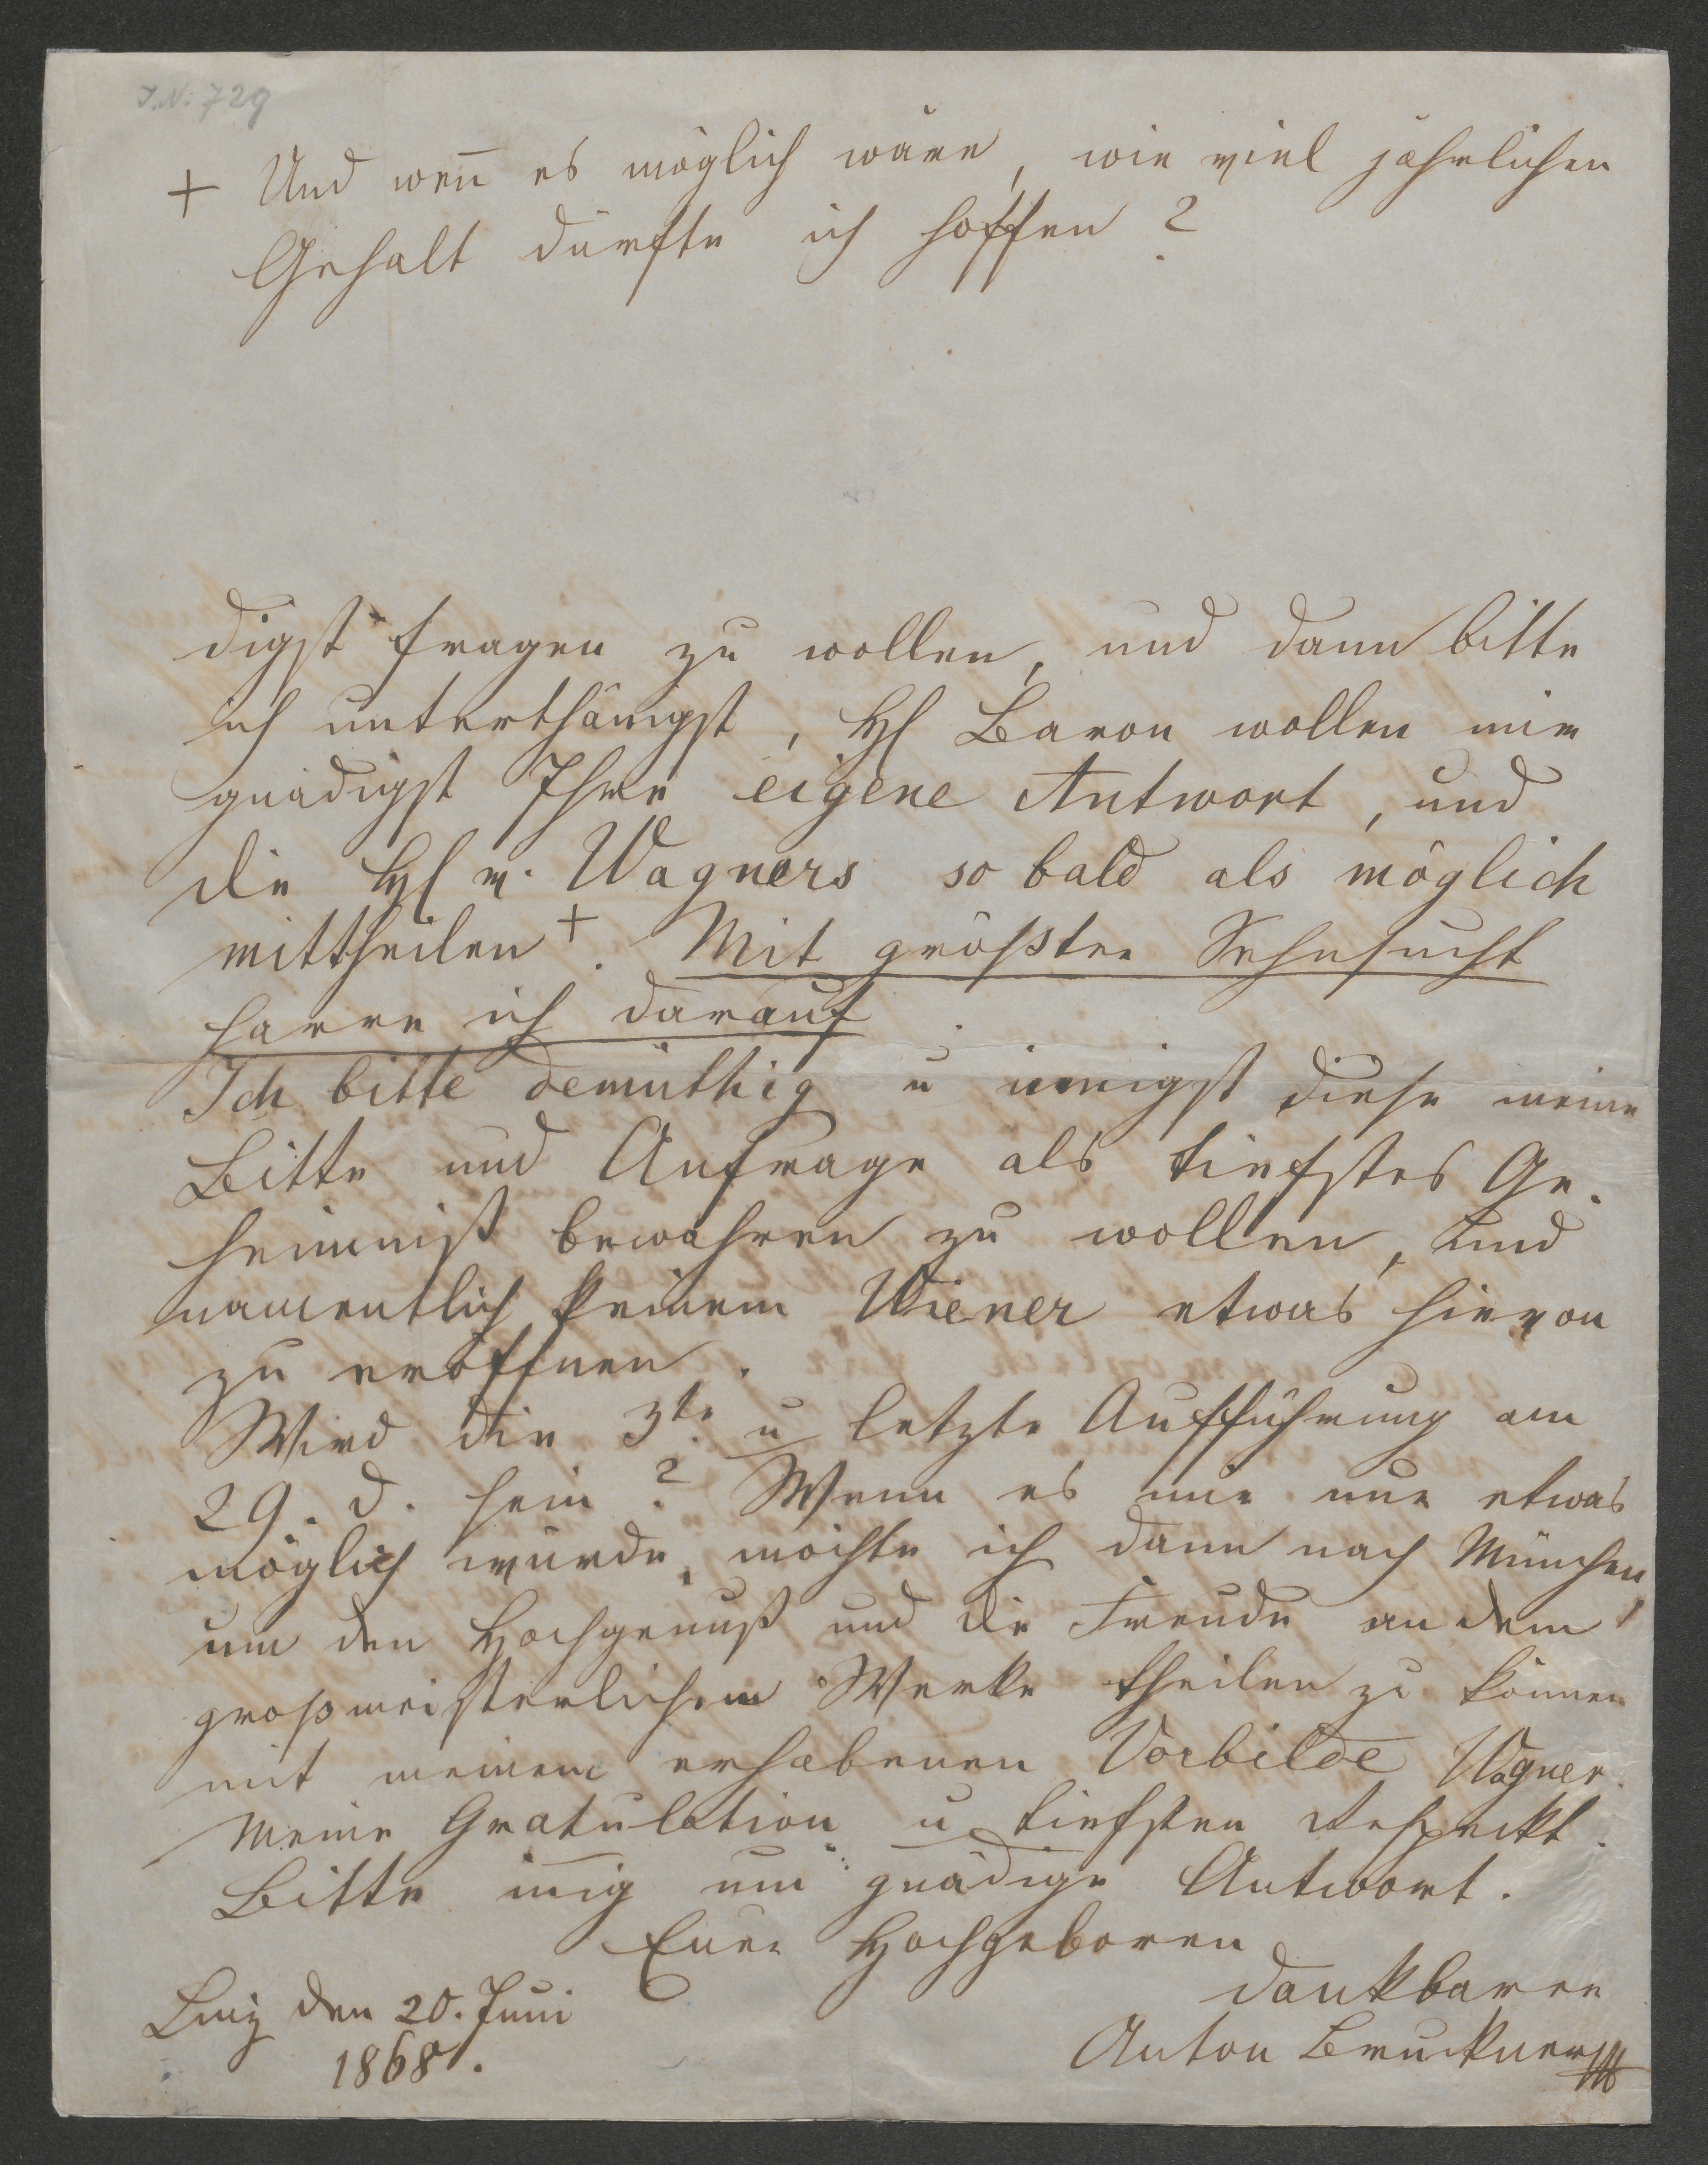 I.N: 729
+ Und wen̄ es möglich wäre, wie viel jährlichen
Gehalt dürfte ich hoffen?
digst fragen zu wollen, und dann bitte
ich unterthänigst, H Baron wollen mir
gnädigst Ihre eigene Antwort, und
die H v. Wagners so bald als möglich
mittheilen +. Mit größter Sehnsucht
harre ich darauf.
Ich bitte demüthig u innigst diese meine
Bitte und Anfrage als tiefstes Ge-
heimniß bewahren zu wollen, und
namentlich keinem Wiener etwas hievon
zu eröffnen.
Wird die 3te u letzte Aufführung am
29. d. sein? Wenn es mir nur etwas
möglich würde, möchte ich dann nach München,
um den Hochgenuß und die Freude an dem
großmeisterlichem Werke theilen zu können
mit meinem erhabenen Vorbilde Wagner.
Meine Gratulation u tiefsten Respekt.
Bitte in̄ig um gnädige Antwort.
Euer Hochgeboren
dankbarer
Linz den 20. Juni
1868.
Anton Bruckner